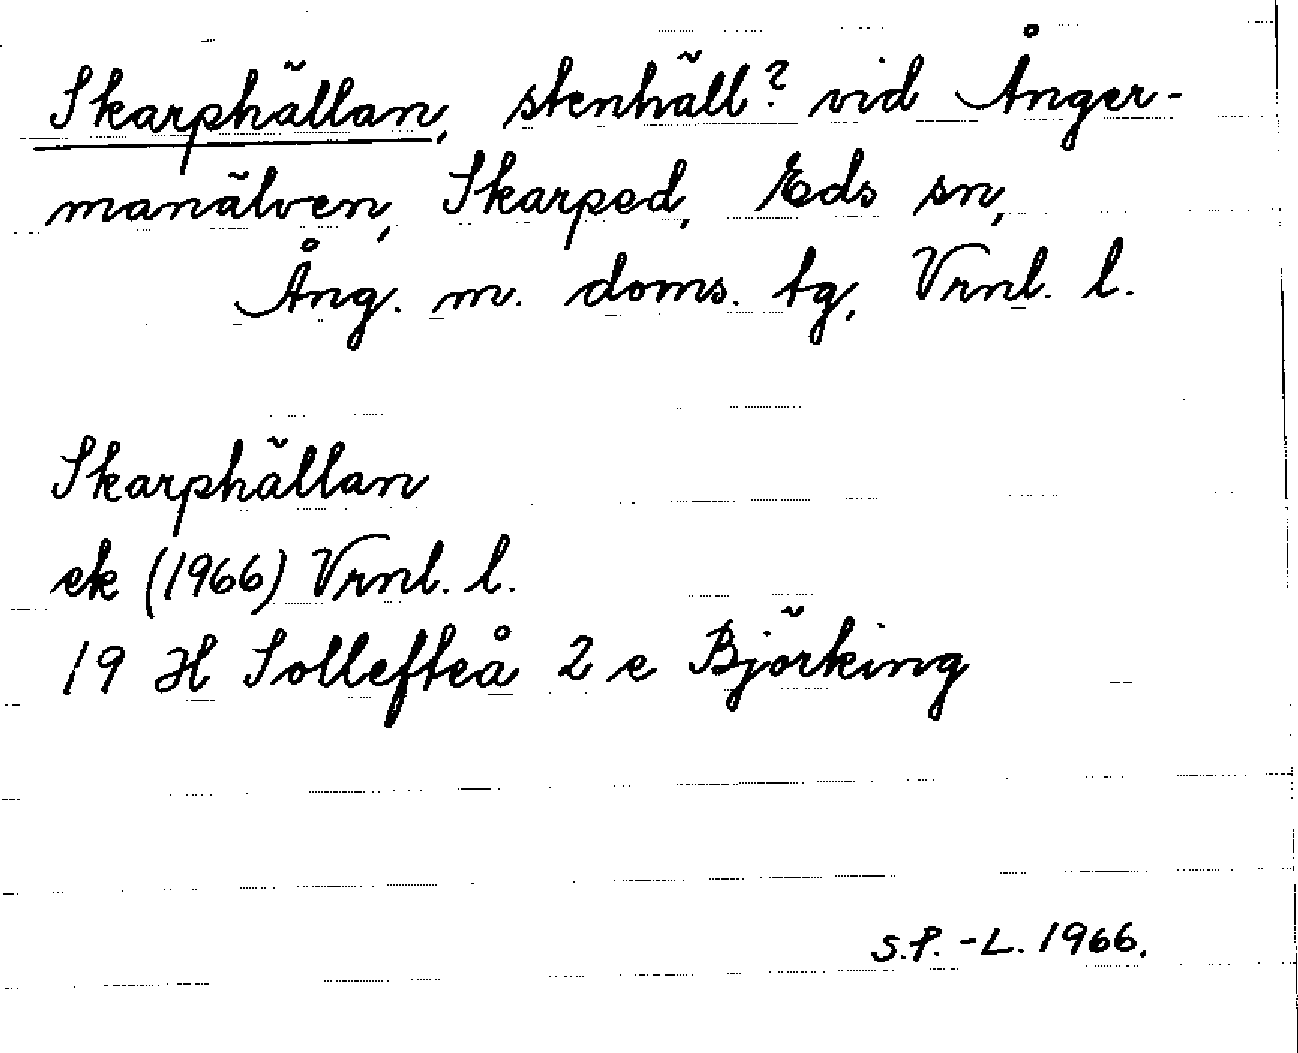 Skarphällan, stenhäll? vid Ånger-
manälven, Skarped, Eds sn,
Ång. m. doms. tg, Vrnl. l.
Skarphällan
ek (1966) Vrnl. l.
19 H Sollefteå 2 e Björking
S.P.-L. 1966.